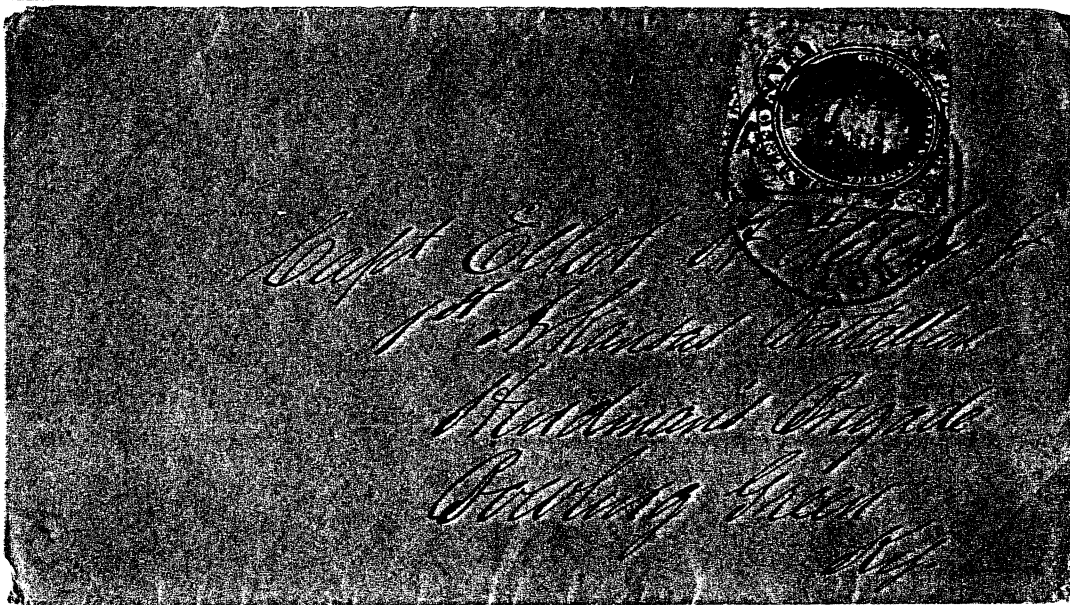 Capt Elliot H Fletcher Jr
1st Arkansas Battallion
Hindman's Brigade
Bowling Green
Ky